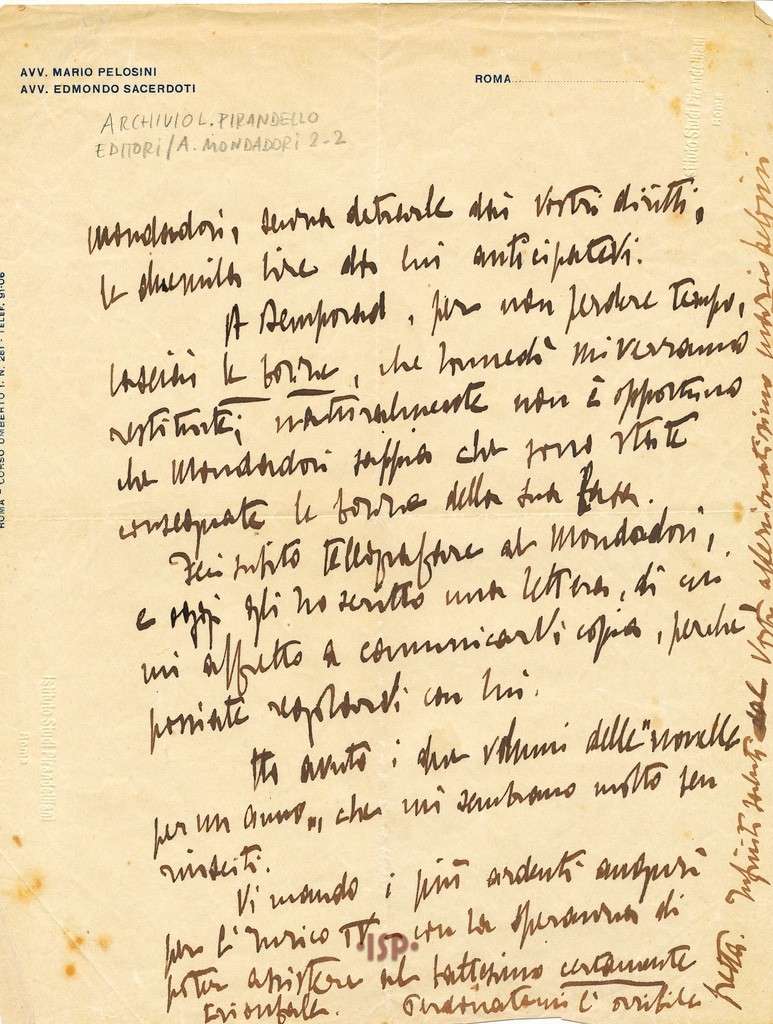 AVV. MARIO PELOSINI
AVV. EDMONDO SACERDOTI
ROMA
ARCHIVIO L. PIRANDELLO
EDITORI/A. MONDADORI 2-2
ROMA - CORSO UMBERTO I. N. 281 - TELEF. 91-06
Mondadori, senza detrarle dai vostri diritti,
le duemila lire da lui anticipatevi.
A Bemporad, per non perdere tempo,
lasciai le bozze, che lunedì mi verranno
restituite; naturalmente non è opportuno
che Mondadori sappia che sono state
consegnate le bozze della sua Casa.
Feci subito telegrafare al Mondadori,
e oggi gli ho scritto una lettera, di cui
mi affretto a comunicarvi copia, perché
possiate regolarvi con lui.
Ho avuto i due volumi delle "novelle
per un anno", che mi sembrano molto ben
riusciti.
Vi mando i più ardenti auguri
per l'Enrico IV con la speranza di
poter assistere al battesimo certamente
trionfale. Perdonatemi l'orribile
fretta. Infiniti saluti dal Vostro affezionatissimo Mario Pelosini
Istituto Studi Pirandelliani
Roma
Istituto Studi Pirandelliani
Roma
·ISP·